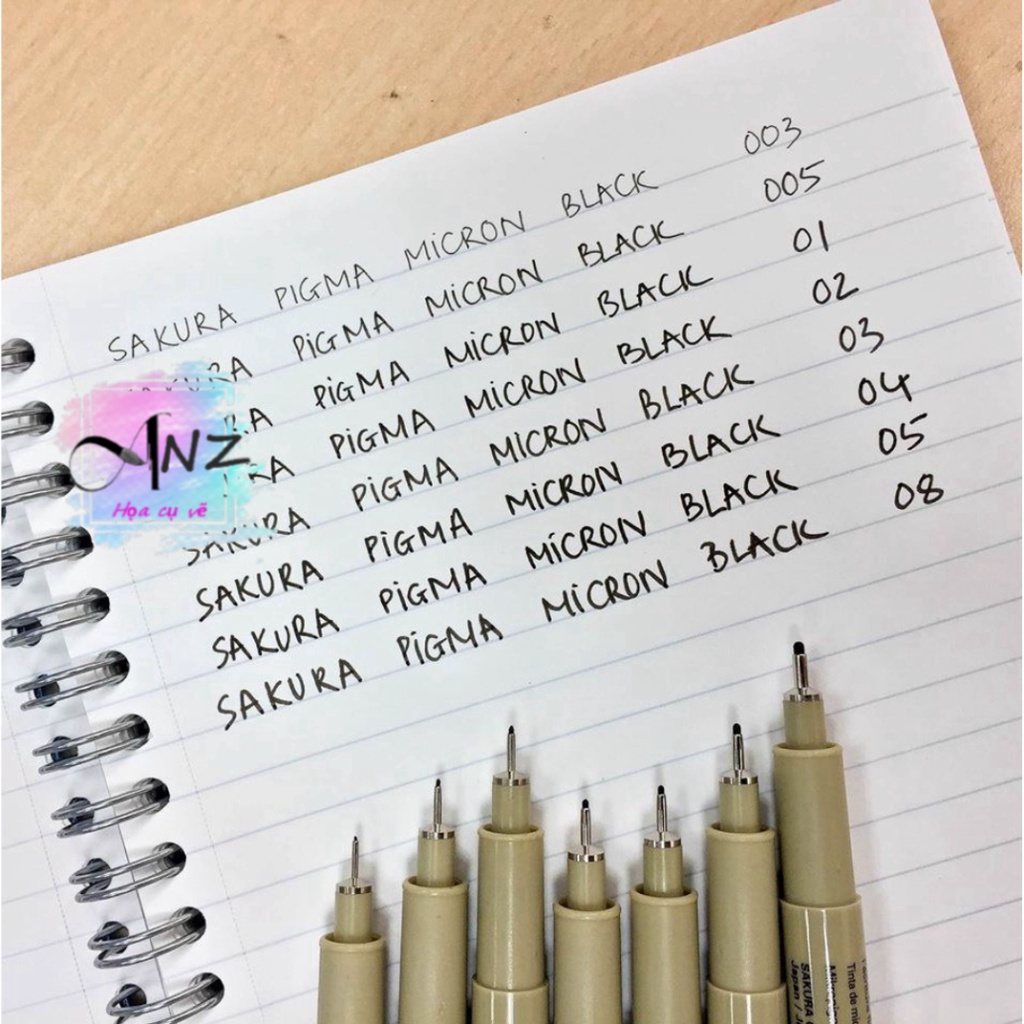 SAKURA PIGMA MiCRON BLACK 003
PiGMA MiCRON BLACK 005
PiGMA MiCRON BLACK 01
PiGMA MiCRON BLACK 02
SAKURA PiGMA MiCRON BLACK 03
SAKURA PiGMA MiCRON BLACK 04
SAKURA PiGMA MiCRON BLACK 05
SAKURA PiGMA MiCRON BLACK 08
ANZ
Họa cụ vẽ
Tinta de
SAKURA
Japan